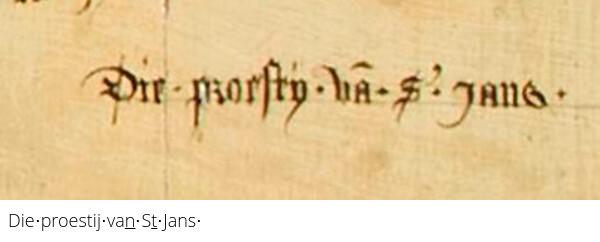 Die·proesty·vā·Sʼ·jans·
Die·proestij·van·St·Jans·